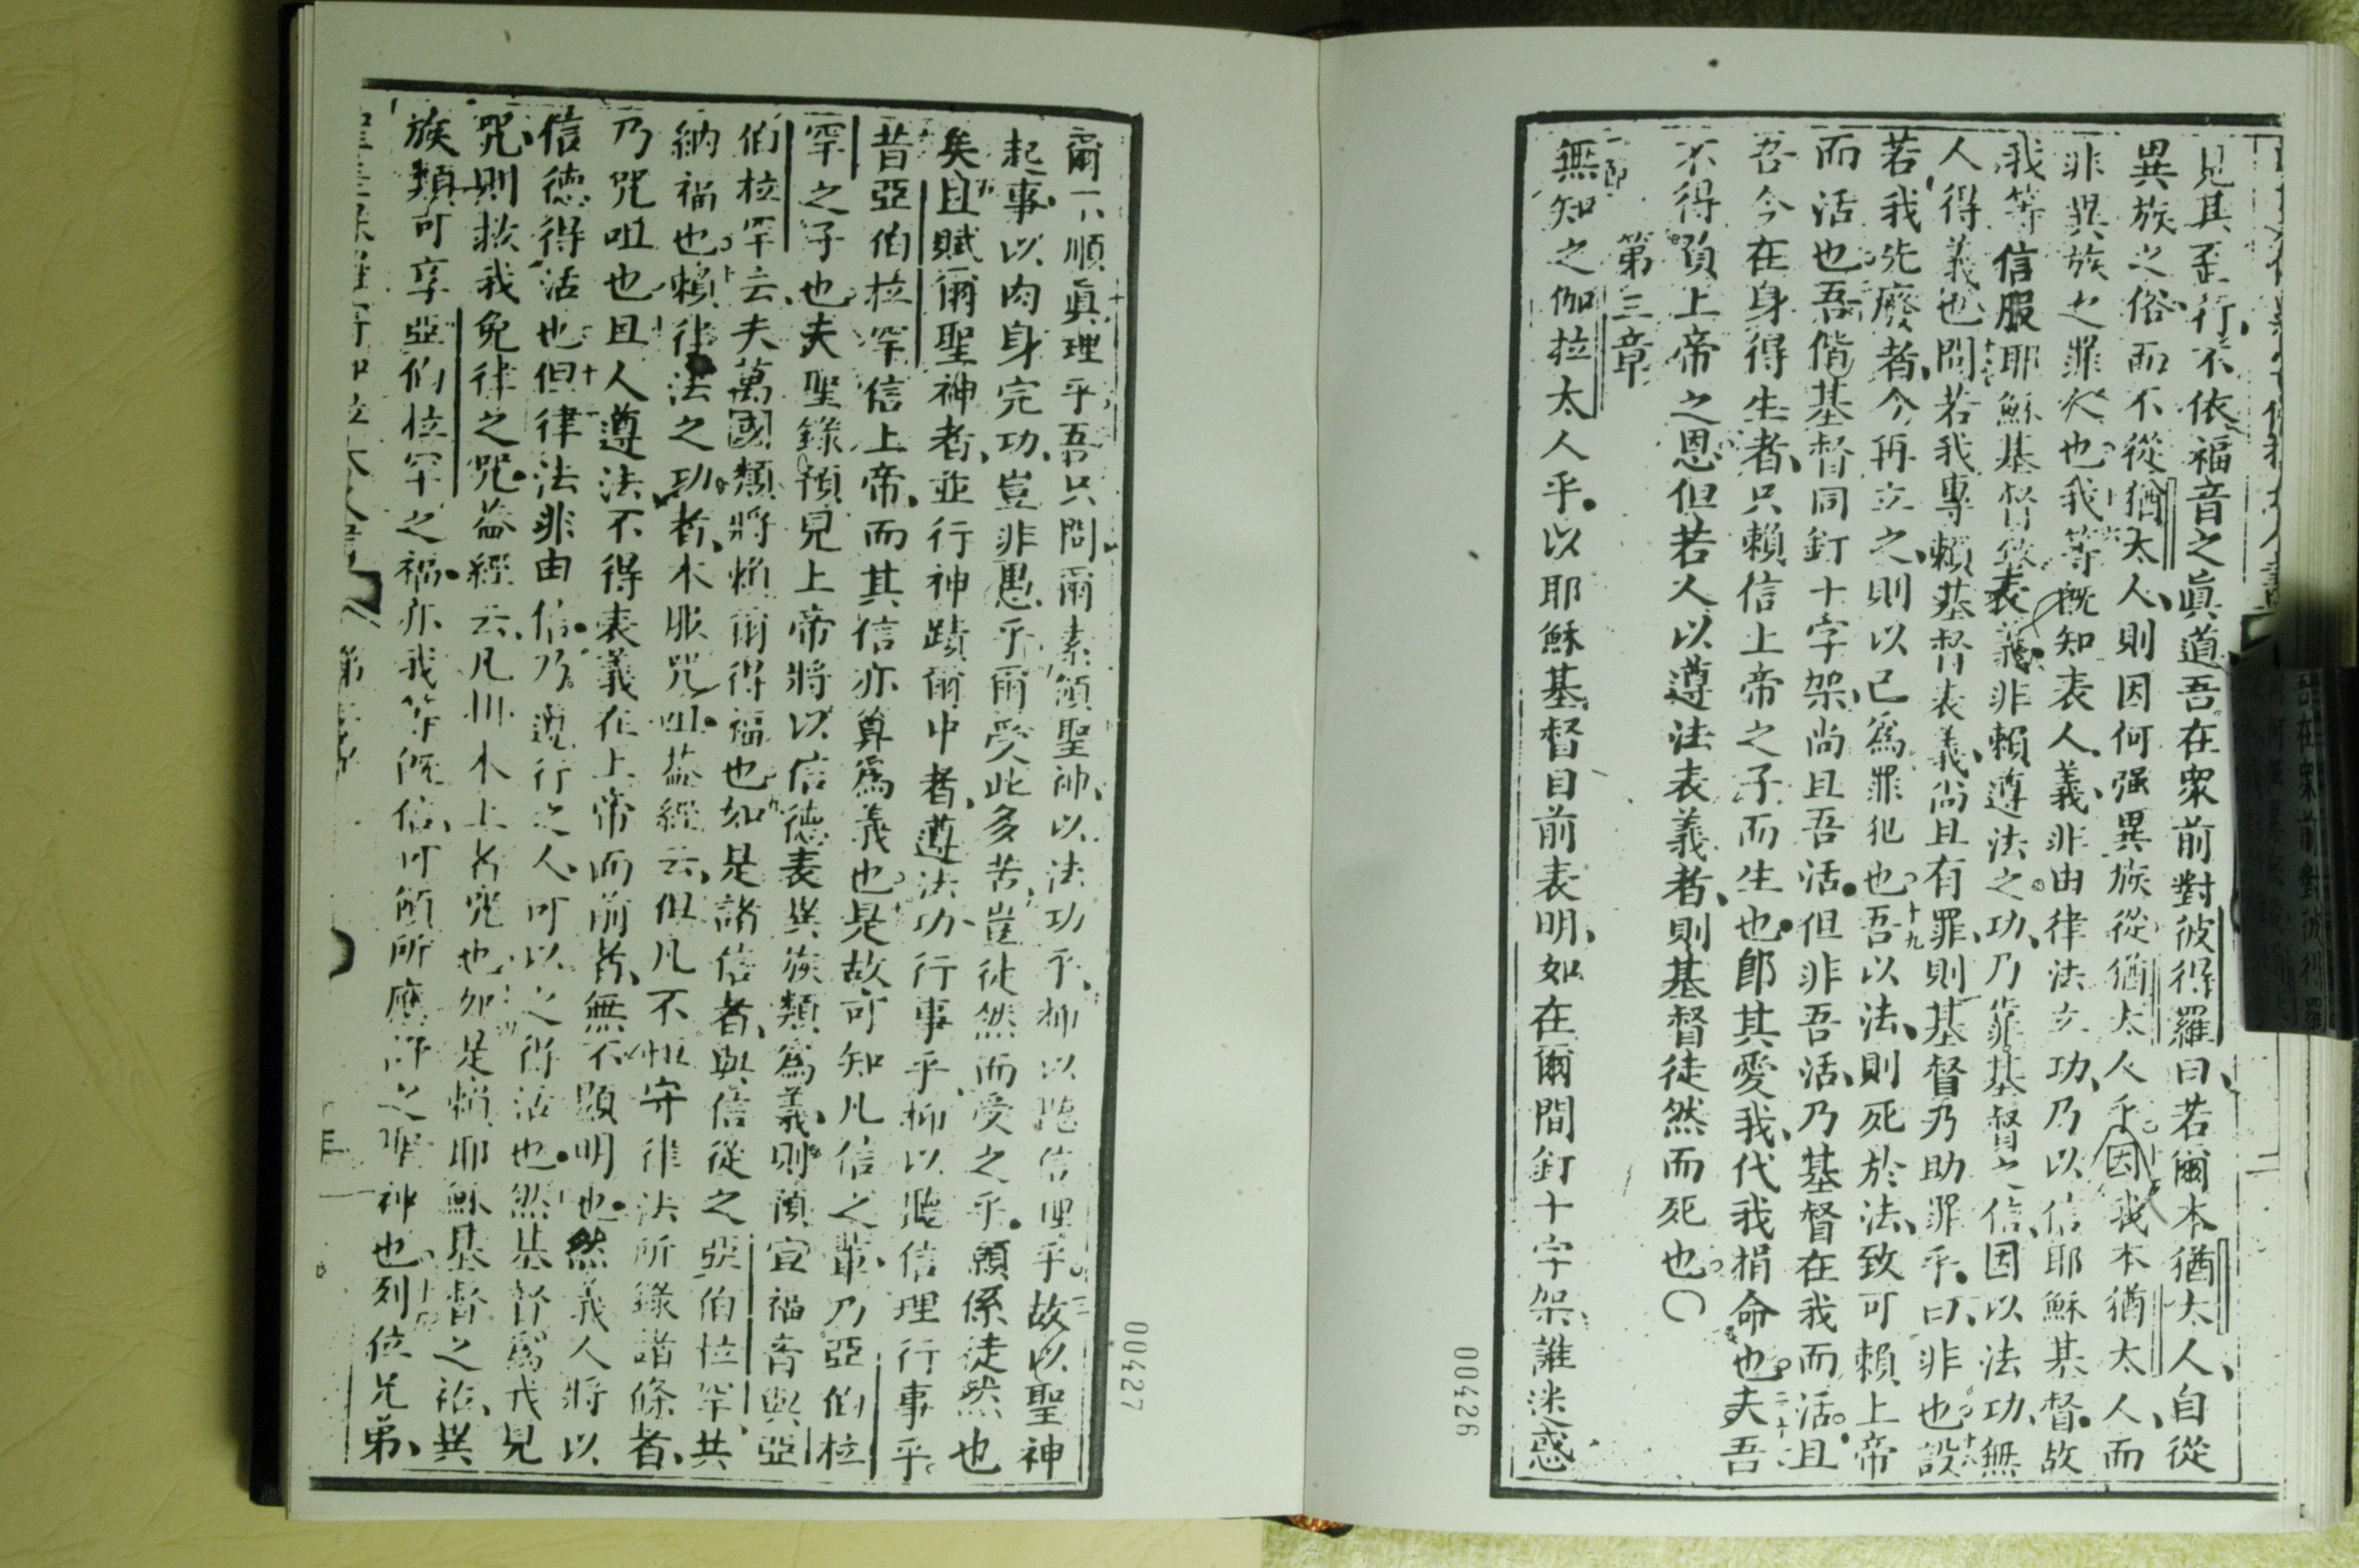 見其歪行、不依福音之眞道、吾在衆前對彼得羅曰、若爾本猶太人、自從
異族之俗、而不從猶太人、則因何强異族從猶太人乎。因我本猶太人、而
非異族之罪人也。我等旣知表人義、非由律法之功、乃以信耶穌基督。故
我等信服耶穌基督、致表義、非賴遵法之功、乃靠基督之信、因以法功、無
人得義也。問若我專賴基督表義、尚且有罪、則基督乃助罪乎。曰、非也。設
若我先廢者、今再立之、則以己爲罪犯也。吾以法、則死於法、致可賴上帝
而活也。吾偕基督同釘十字架、尚且吾活。但非吾活、乃基督在我而活。且
吾今在身得生者、只賴信上帝之子而生也。卽其愛我、代我捐命也。夫吾
不得負上帝之恩。但若人以遵法表義者、則基督徒然而死也。
第三章
無知之伽拉太人乎。以耶穌基督目前表明、如在爾間釘十字架、誰迷惑
00426
爾不順眞理乎。吾只問爾素領聖神、以法功乎、抑以聽信理乎。故以聖神
起事、以肉身完功、豈非愚乎。爾受此多苦、豈徒然而受之乎。願係徒然也
矣。且賦爾聖神者、並行神蹟爾中者、遵法功行事乎、抑以聽信理行事乎。
昔亞伯拉罕信上帝、而其信亦算爲義也。是故可知凡信之輩、乃亞伯拉
罕之子也。夫聖錄預見上帝將以信德表異族類爲義、則預宣福音與亞
伯拉罕云、夫萬國類將賴爾得福也。如是諸信者、與信從之亞伯拉罕共
納福也。賴律法之功者、本服咒咀。蓋經云、但凡不恒守律法所錄諸條者、
乃咒咀也。且人遵法不得表義在上帝而前者、無不顯明也。然義人將以
信德得活也。但律法非由信。乃遵行之人、可以之得活也。然基督爲我見
咒、則救我免律之咒。蓋經云、凡川木上者咒也。如是賴耶穌基督之祐、異
族類可享亞伯拉罕之福。亦我等旣信、可領所應許之聖神也。列位兄弟、
00427